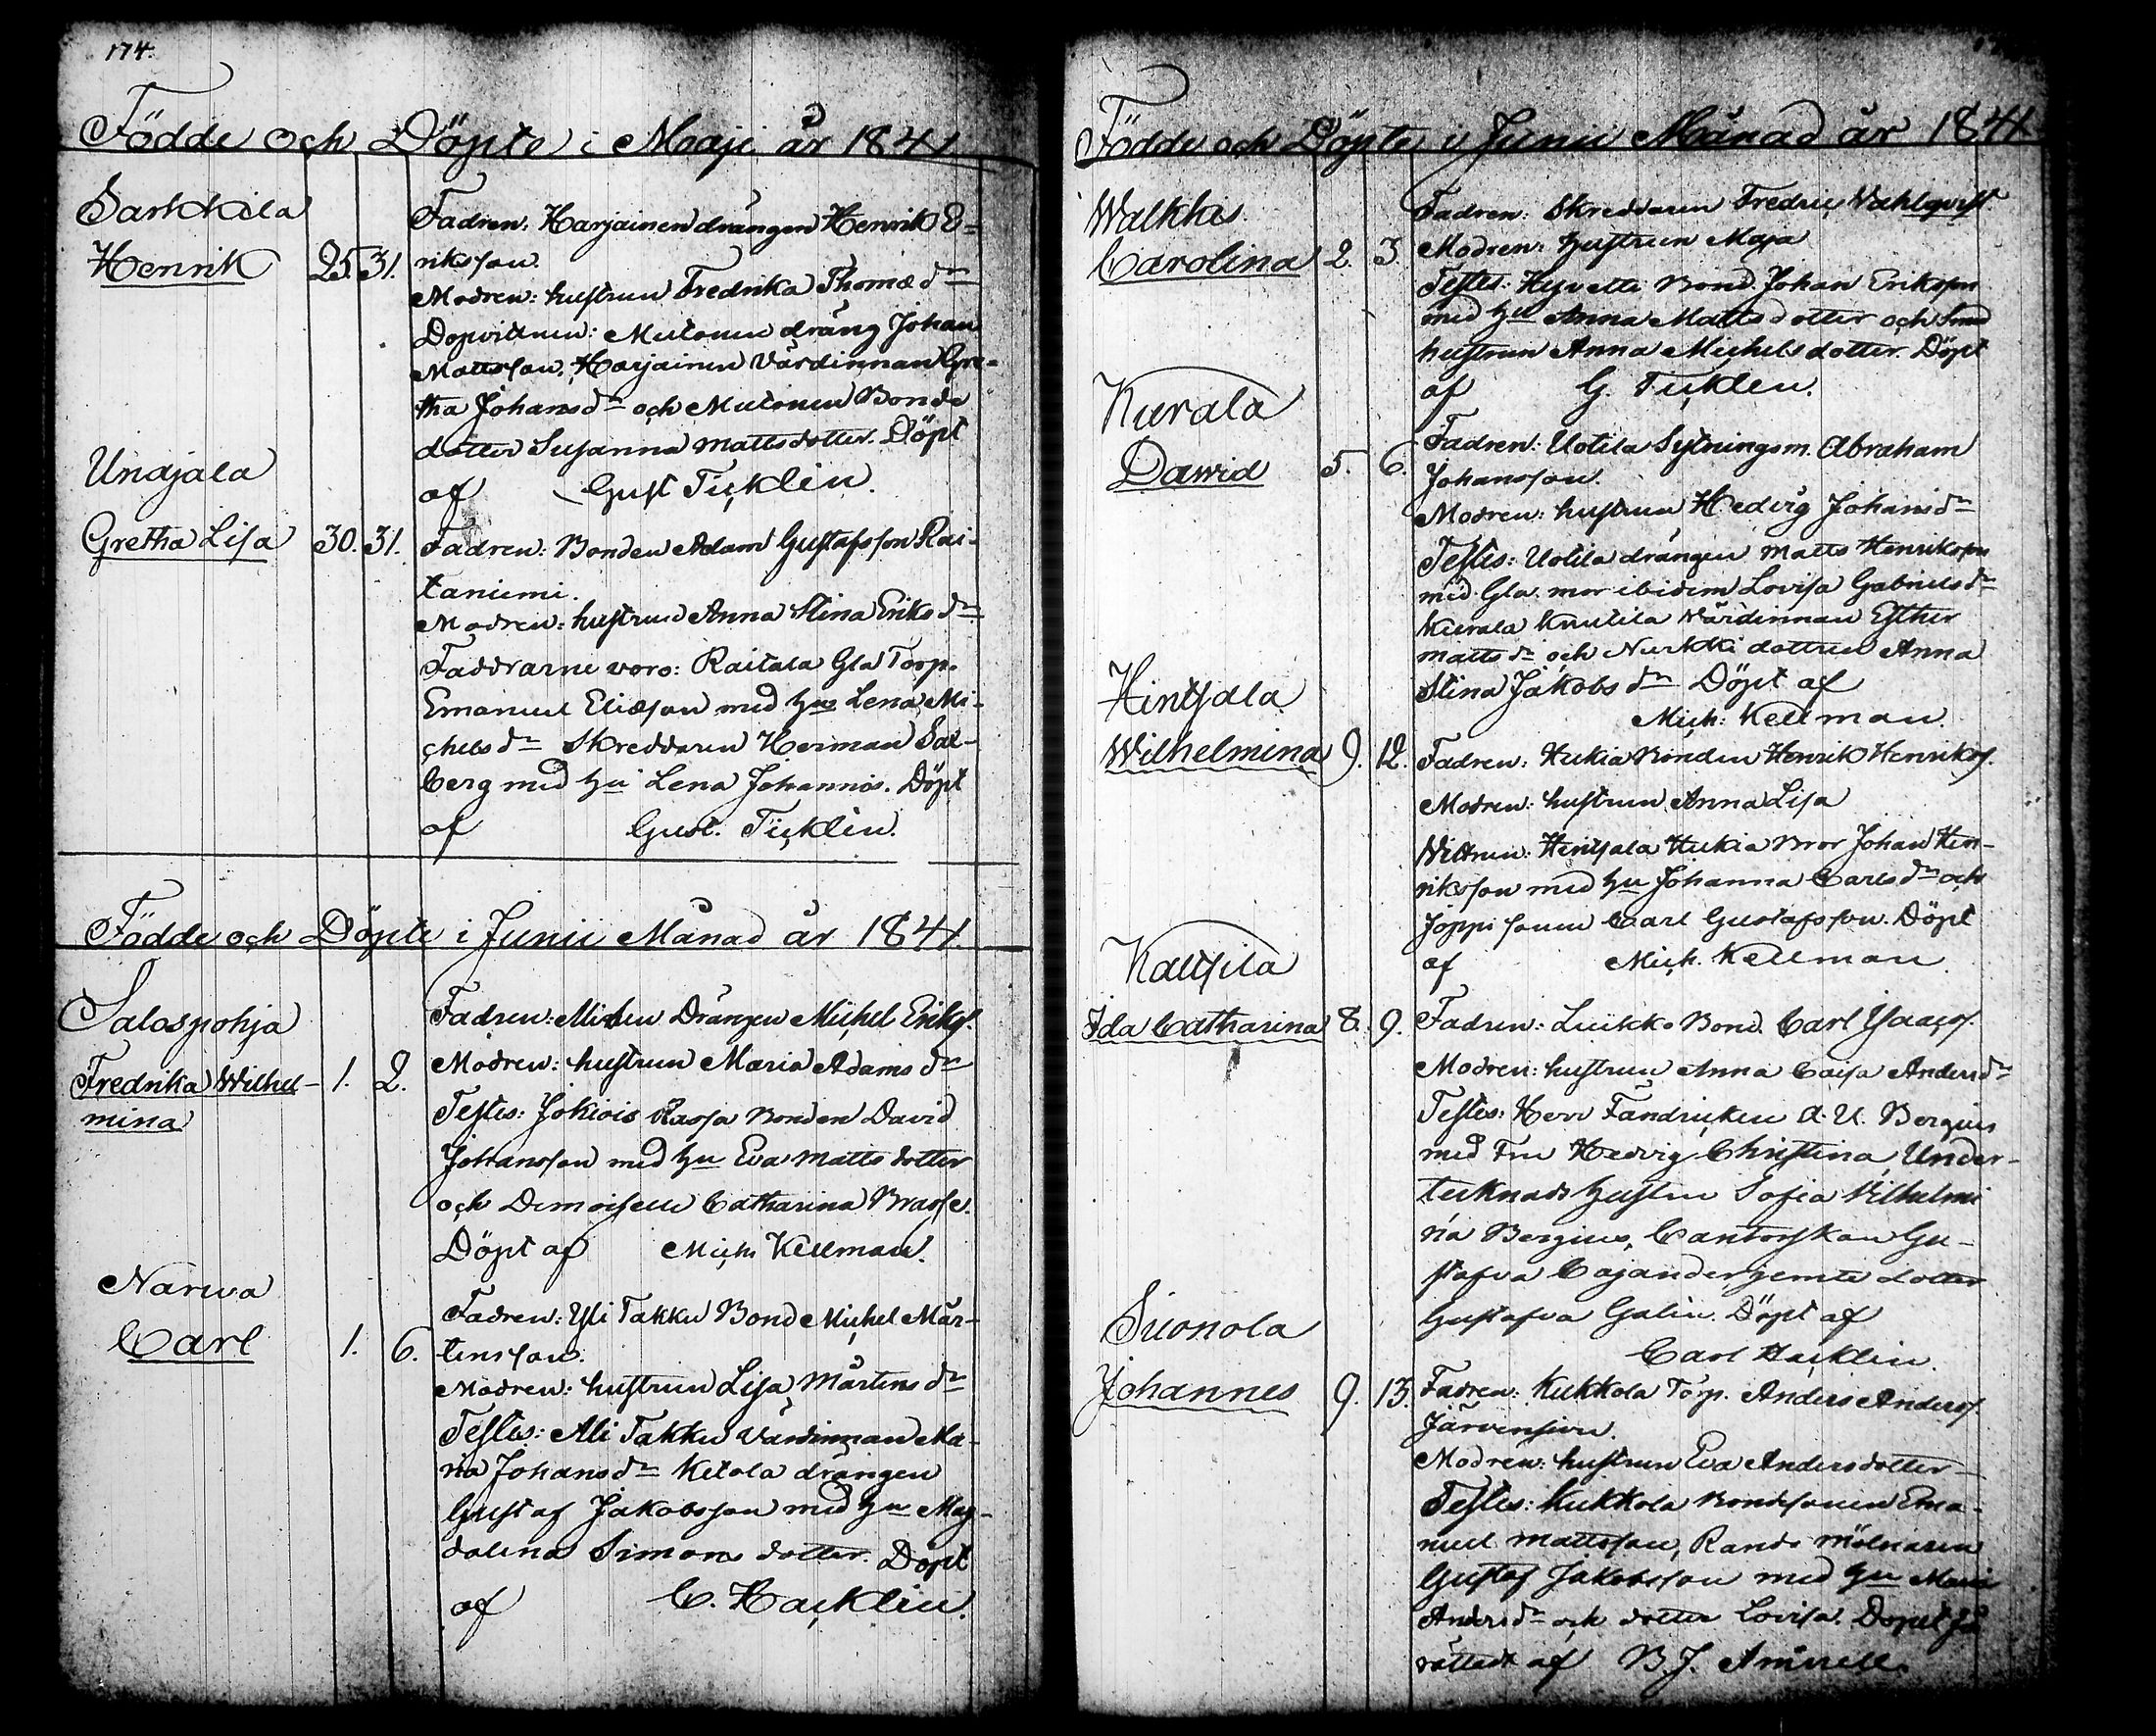 174.
Födde och Döpte i Maji år 1841
Sarkkila
Henrik 25. 31.
Fadren: Harjainen drängen Henrik E=
riksson.
Modren: hustrun Fredrika Thomæ dr
Dopvittnen: Mutonen dräng Johan
Mattsson, Harjainen Värdinnan Gre=
tha Johans dr och Mutonen Bonde
dotter Susanna Mattsdotter. Döpt
af Gust Ticklén.
Undjala
Gretha Lisa 30. 31.
Fadren: Bonden Adam Gustafsson Rai-
taniemi.
Modren: hustrun Anna Stina Eriks dr
Faddrarne voro: Raitala Gla Torp.
Emanuel Eliæson med hu Lena Mi-
chels dr Skreddaren Herman Sal-
berg med hu Lena Johannis. Döpt
af Gust. Ticklén.
Födde och Döpte i Junii Månad år 1841.
Salospohja
Fredrika Wilhel-
mina 1. 2.
Fadren: Drängen Michel Eriks.
Modren: hustrun Maria Adams dr
Testes: Jokiois Rassa Bonden David
Johansson med hu Eva Mattsdotter
och Demoiselle Catharina Brasse.
Döpt af Mich Kellman.
Narwa
Carl 1. 6.
Fadren: Yli Takku Bond Michel Mår-
tensson.
Modren: hustrun Lisa Mårtens dr
Testes: Ali Takku Värdinnan Ma-
ria Johans dr Ketola drängen
Gustaf Jakobsson med hu Mag-
dalena Simons dotter. Döpt
af C. Hacklin.
Födde och Döpte i Junii Månad år 1841
Walkkis
Carolina 2. 3.
Fadren: Skreddaren Fredric Wahlqvist.
Modren: hustrun Maja
Testes: Hyvetti Bond. Johan Eriksson
med hu Anna Mattsdotter och Smed
hustrun Anna Michelsdotter. Döpt
af G. Ticklén.
Kurala
Dawid 5. 6.
Fadren: Uotila Sytningsm. Abraham
Johansson.
Modren: hustrun Hedvig Johans dr
Testes: Uotila drängen Matts Henriksson
med Gla. mor ibidem Lovisa Gabriels dr
Kurala Knutila Wärdinnan Esther
Matts dr och Nurkki dottren Anna
Stina Jakobs dr Döpt af
Mich: Kellman.
Hintsala
Wilhelmina 9. 12.
Fadren: Heikia Bonden Henrik Henriks.
Modren: hustrun Anna Lisa
Wittnen: Hintsala Heikia Bror Johan Hen-
riksson med hu Johanna Carls dr och
Joppi sonen Carl Gustafsson. Döpt
af Mich. Kellman.
Kautsila
Ida Catharina 8. 9.
Fadren: Luikko Bond. Carl Isaacs.
Modren: hustrun Anna Caisa Anders dr
Testes: Herr Fändricken A. U. Bergius
med Fru Hedvig Christina, Under-
tecknads hustru Sofia Wilhelmi
na Bergius, Cantorskan Gu-
stafva Cajander jemte dotter
Gustafva Galin. Döpt af
Carl Hacklin.
Suonola
Johannes 9. 13.
Fadren: Kukkola Torp. Anders Anders.
Järvensivu.
Modren: hustrun Eva Andersdotter
Testes: Kukkola Bondsonen Ema-
nuel Mattsson, Rands Mölnaren
Gustaf Jakobsson med hu Maria
Anders dr och dotter Lovisa. Döpet
rättadt af B. J. Amnell.